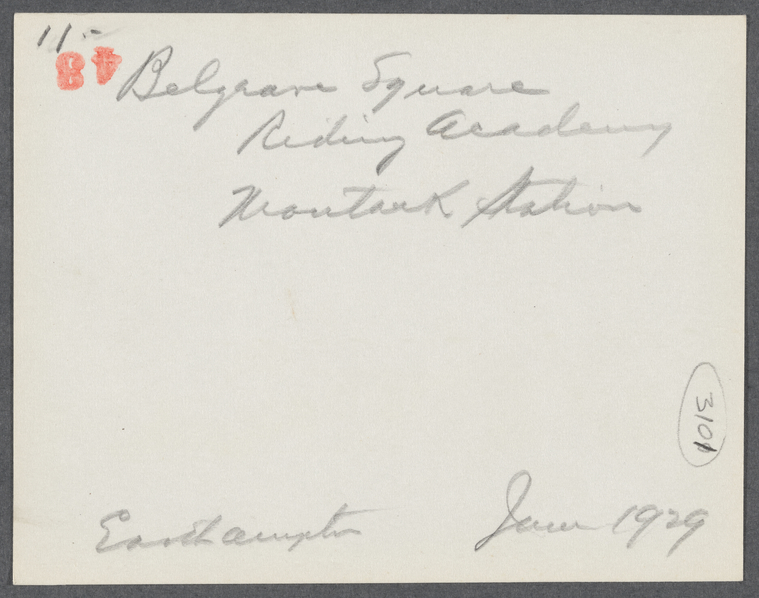 11-
84
Belgrave Square
Riding Academy
Montauk Station
3101
Easthampton June 1929